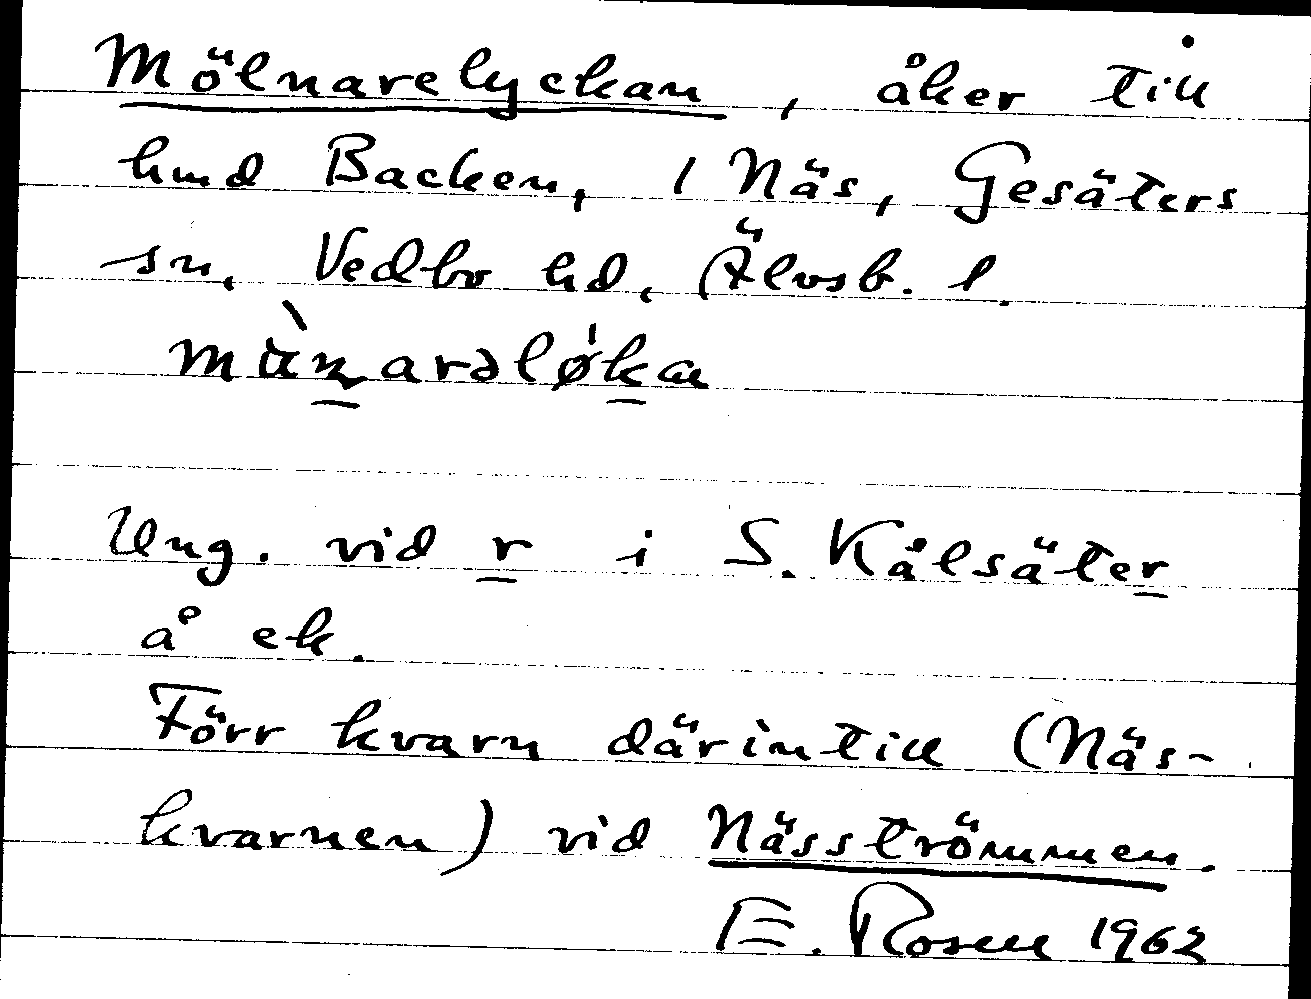 Mölnarelyckan, åker till
hmd Backen, 1 Näs, Gesäters
sn, Vedbo hd, Älvsb. l.
Ung. vid r i S. Kålsäter
å ek.
Förr kvarn därintill (Näs-
kvarnen) vid Näsströmmen.
E. Rosell 1962